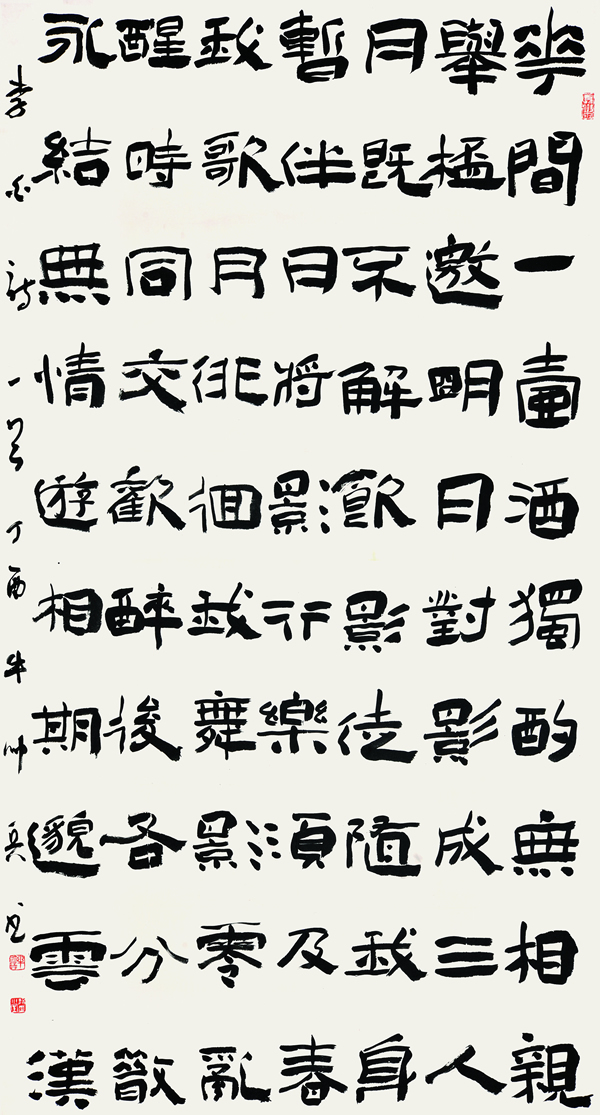 華間一壺酒獨酌無相親
舉杯邀明月對影成三人
月既不解飲影徒隨我身
暫伴月將影行樂須及春
我歌月徘徊我舞影零亂
醒時同交歡醉後各分散
永結無情遊相期邈雲漢
李白詩一首丁酉牛帥兵书